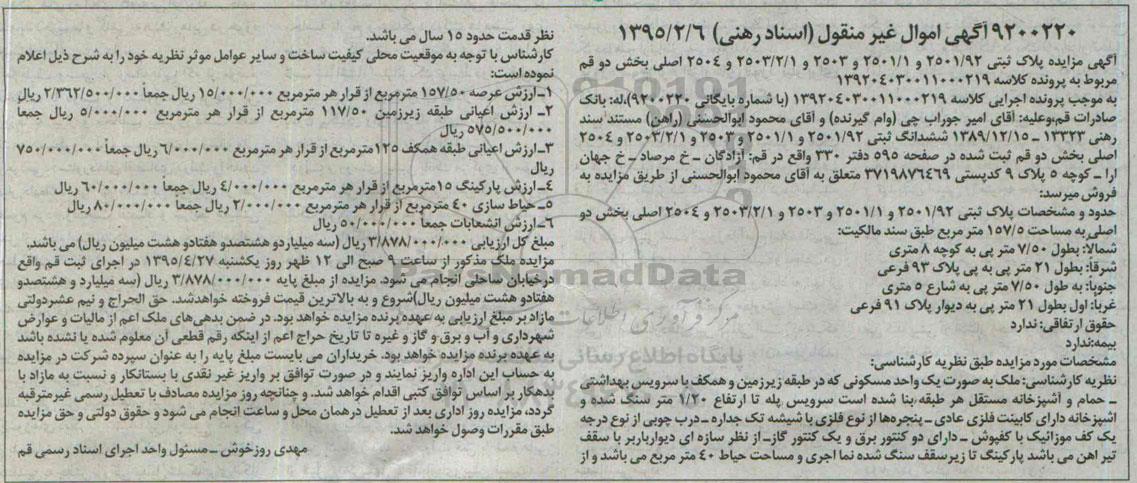 ۹۲۰۰۲۲۰ آگهی اموال غیر منقول (اسناد رهنی) ۱۳۹۵/۲/۶
آگهی مزایده پلاک ثبتی ۲۵۰۱/۹۲ و ۲۵۰۱/۱ و ۲۵۰۳ و ۲۵۰۳/۲/۱ و ۲۵۰۴ اصلی بخش دو قم
مربوط به پرونده کلاسه ۱۳۹۲۰۴۰۳۰۰۱۱۰۰۰۲۱۹
به موجب پرونده اجرایی کلاسه ۱۳۹۲۰۴۰۳۰۰۱۱۰۰۰۲۱۹ (با شماره بایگانی ۹۲۰۰۲۲۰)،له: بانک
صادرات قم،وعلیه: آقای امیر جوراب چی (وام گیرنده) و آقای محمود ابوالحسنی (راهن) مستند سند
رهنی ۱۳۳۲۳ – ۱۳۸۹/۱۲/۱۵ ششدانگ ثبتی ۲۵۰۱/۹۲ و ۲۵۰۱/۱ و ۲۵۰۳ و ۲۵۰۳/۲/۱ و ۲۵۰۴
اصلی بخش دو قم ثبت شده در صفحه ۵۹۵ دفتر ۳۳۰ واقع در قم: آزادگان ـ خ مرصاد ـ خ جهان
ارا ـ کوچه ۵ پلاک ۹ کدپستی ۳۷۱۹۸۷۶۴۶۹ متعلق به آقای محمود ابوالحسنی از طریق مزایده به
فروش میرسد:
حدود و مشخصات پلاک ثبتی ۲۵۰۱/۹۲ و ۲۵۰۱/۱ و ۲۵۰۳ و ۲۵۰۳/۲/۱ و ۲۵۰۴ اصلی بخش دو
اصلی به مساحت ۱۵۷/۵ متر مربع طبق سند مالکیت:
شمالا: بطول ۷/۵۰ متر پی به کوچه ۸ متری
شرقا: بطول ۲۱ متر پی به پی پلاک ۹۳ فرعی
جنوبا: به طول ۷/۵۰ متر پی به شارع ۵ متری
غربا: اول بطول ۲۱ متر پی به دیوار پلاک ۹۱ فرعی
حقوق ارتفاقی: ندارد
بیمه:ندارد
مشخصات مورد مزایده طبق نظریه کارشناسی:
نظریه کارشناسی: ملک به صورت یک واحد مسکونی که در طبقه زیرزمین و همکف با سرویس بهداشتی
ـ حمام و آشپزخانه مستقل هر طبقه بنا شده است سرویس پله تا ارتفاع ۱/۲۰ متر سنگ شده و
اشپزخانه دارای کابینت فلزی عادی ـ پنجره‌ها از نوع فلزی با شیشه تک جداره ـ درب چوبی از نوع درجه
یک کف موزائیک با کفپوش ـ دارای دو کنتور برق و یک کنتور گاز ـ از نظر سازه ای دیوارباربر با سقف
تیر اهن می باشد پارکینگ تا زیرسقف سنگ شده نما اجری و مساحت حیاط ۴۰ متر مربع می باشد و از
نظر قدمت حدود ۱۵ سال می باشد.
کارشناس با توجه به موقعیت محلی کیفیت ساخت و سایر عوامل موثر نظریه خود را به شرح ذیل اعلام
نموده است:
۱ـ ارزش عرصه ۱۵۷/۵۰ مترمربع از قرار هر مترمربع ۱۵/۰۰۰/۰۰۰ ریال جمعاً ۲/۳۶۲/۵۰۰/۰۰۰ ریال
۲ـ ارزش اعیانی طبقه زیرزمین ۱۱۷/۵۰ مترمربع از قرار هر مترمربع ۵/۰۰۰/۰۰۰ ریال جمعاً
۵۷۵/۵۰۰/۰۰۰ ریال
۳ـ ارزش اعیانی طبقه همکف ۱۲۵مترمربع از قرار هر مترمربع ۶/۰۰۰/۰۰۰ ریال جمعاً ۷۵۰/۰۰۰/۰۰۰
ریال
۴ـ ارزش پارکینگ ۱۵مترمربع از قرار هر مترمربع ۴/۰۰۰/۰۰۰ ریال جمعاً ۶۰/۰۰۰/۰۰۰ ریال
۵ـ حیاط سازی ۴۰ مترمربع از قرار هر مترمربع ۲/۰۰۰/۰۰۰ ریال جمعاً ۸۰/۰۰۰/۰۰۰ ریال
۶ـ ارزش انشعابات جمعاً ۵۰/۰۰۰/۰۰۰ ریال
مبلغ کل ارزیابی ۳/۸۷۸/۰۰۰/۰۰۰ ریال (سه میلیاردو هشتصدو هفتادو هشت میلیون ریال) می باشد.
مزایده ملک مذکور از ساعت ۹ صبح الی ۱۲ ظهر روز یکشنبه ۱۳۹۵/۴/۲۷ در اجرای ثبت قم واقع
درخیابان ساحلی انجام می شود. مزایده از مبلغ پایه ۳/۸۷۸/۰۰۰/۰۰۰ ریال (سه میلیارد و هشتصدو
هفتادو هشت میلیون ریال)شروع و به بالاترین قیمت فروخته خواهدشد. حق الحراج و نیم عشردولتی
مازاد بر مبلغ ارزیابی به عهده برنده مزایده خواهد بود. در ضمن بدهی‌های ملک اعم از مالیات و عوارض
شهرداری و آب و برق و گاز و غیره تا تاریخ حراج اعم از اینکه رقم قطعی آن معلوم شده یا نشده باشد
به عهده برنده مزایده خواهد بود. خریداران می بایست مبلغ پایه را به عنوان سپرده شرکت در مزایده
به حساب این اداره واریز نمایند و در صورت توافق بر واریز غیر نقدی با بستانکار و نسبت به مازاد با
بدهکار بر اساس توافق کتبی اقدام خواهد شد. و چنانچه روز مزایده مصادف با تعطیل رسمی غیرمترقبه
گردد، مزایده روز اداری بعد از تعطیل درهمان محل و ساعت انجام می شود و حقوق دولتی و حق مزایده
طبق مقررات وصول خواهد شد.
مهدی روزخوش ـ مسئول واحد اجرای اسناد رسمی قم
ParsNamadData
مرکز فرآوری اطلاعات
پایگاه اطلاع رسانی